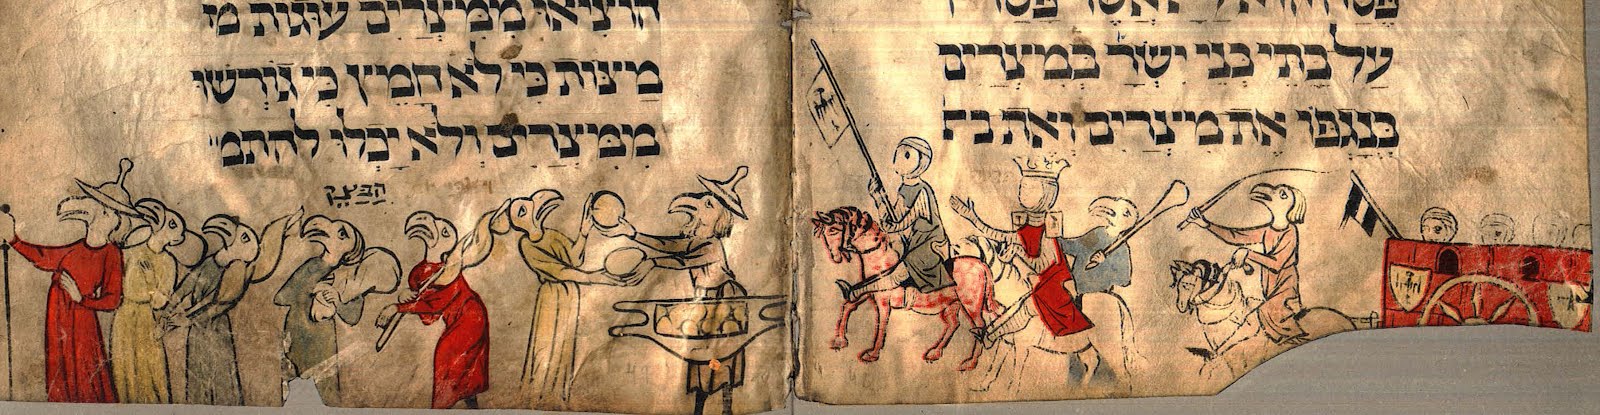 פסח הוא ליי אשר פסח
עַל בָתֵי בְנֵי יִשְׂרָ בְּמִצְרַיִם
בְּנָגְפּוֹ אֶת מִצְרַיִם וְאֶת בת
הוציאו מִמִצְרַיִם עֻגּוֹת מ
מַצּוֹת כִּי לֹא חָמֵץ כִּי גוֹרְשׁוּ
מִמִּצְרַיִם וְלֹא יָכְלוּ לְהִתְמַ
הַבָּצֵק